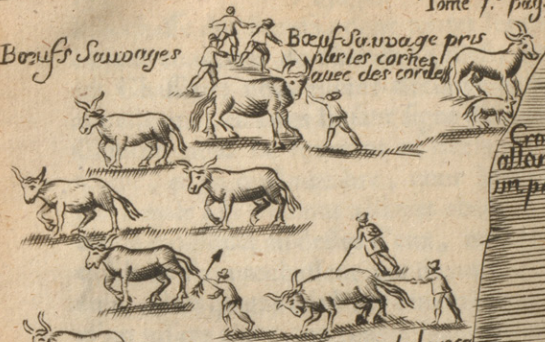 Tome 1. pag
Bœufs Sauvages
Bœuf Sauvage pris
par les cornes
avec des cordes